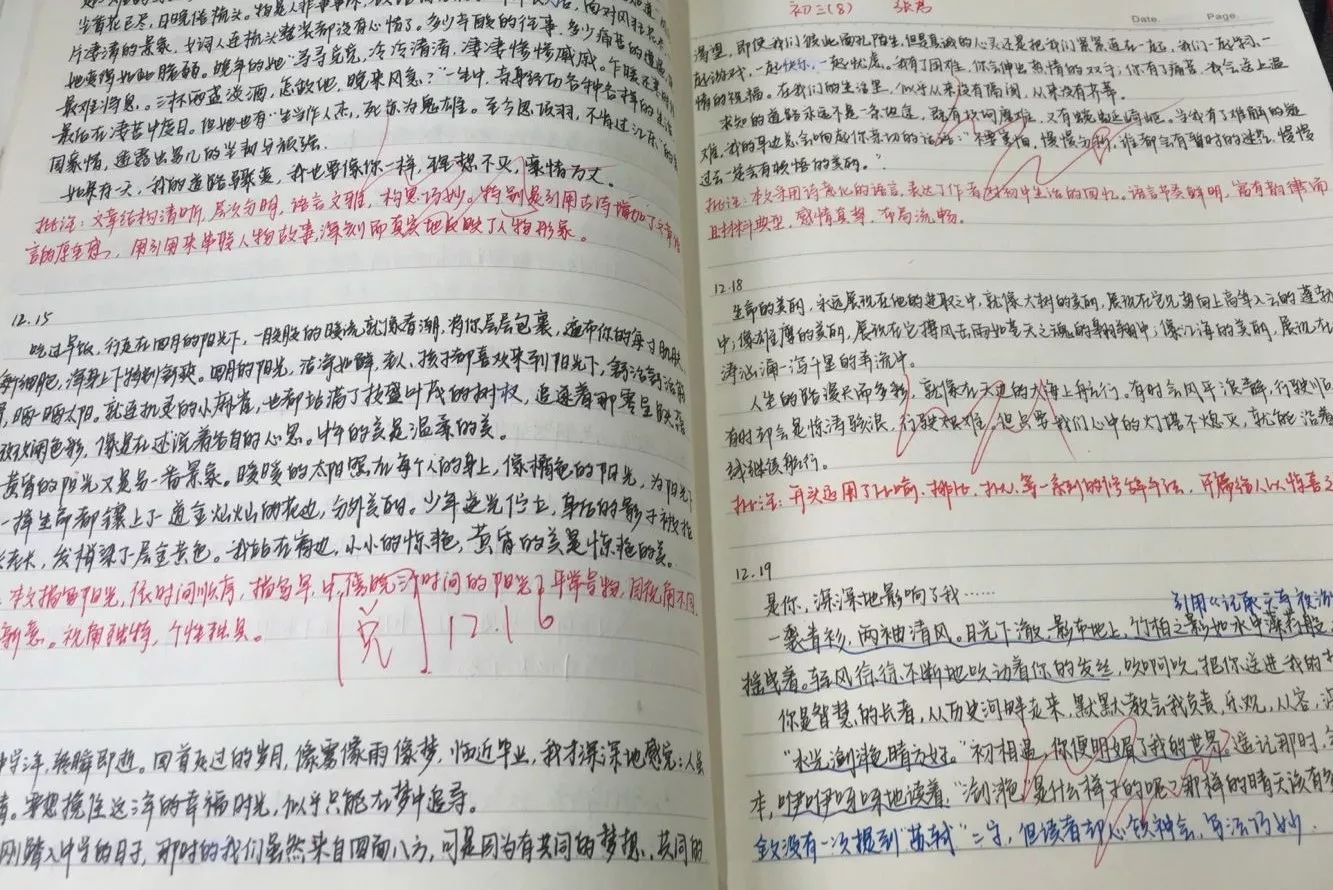 坐着花已尽，日晚倦梳头。物是人非事事休
片凄清的景象，女词人连梳头整装都没有心情了。多少辛酸的往事，多少痛苦的遭遇
她变得如此脆弱。晚年的她"寻寻觅觅，冷冷清清，凄凄惨惨戚戚。乍暖还寒时
最难将息。三杯两盏淡酒，怎敌他，晚来风急？"一生中，亲身经历各种各样的生活
最后在凄苦中度日。但她也有"生当作人杰，死亦为鬼雄。至今思项羽，不肯过江东"的
国豪情，透露出男儿的坚韧与顽强。
如果有一天，我的道路艰黄，我也要像你一样，理想不灭，豪情万丈。
批注：文章结构清晰，层次分明，语言文雅，构思巧妙。特别是引用古诗增加了文章
言的厚重感，用引用来串联人物故事，深刻而真实地反映了人物形象。
12.15
吃过早饭，行走在四月的阳光下，一股股的暖流就像春潮，将你层层包裹，遍布你的每寸肌肤
细胞，浑身上下特别舒爽。四月的阳光，洁净如醉，老人、孩子都喜欢来到阳光下，舒活舒活筋
晒晒太阳。就连机灵的小麻雀，也都站满了枝盛叶茂的树杈，追逐着
色彩，像是在述说着各自的心思。中午的美是温柔的美。
黄昏的阳光又是另一番景象。暖暖的太阳照在每个人的身上，像橘色的阳光，为阳光下
一样生命都镶上了一道金灿灿的花边，分外美丽。少年逆光伫立，身后的影子被拉
长，发梢染了层金黄色。我站在旁边，小小的惊艳，黄昏的美是惊艳的美。
本文描写阳光，依时间顺序，描写早、中、傍晚三个时间的阳光，平常景物，因视角不同
新意。视角独特，个性独具。
阅 12.16
年，转瞬即逝。回首走过的岁月，像雾像雨像梦，临近毕业，我才深深地感觉：人
要想挽住这三年的幸福时光，似乎只能在梦中追寻。
刚踏入中学的日子，那时的我们虽然来自四面八方，可是因为有共同的梦想、共同的
初三(8)
Date Page
渴望，即使我们彼此面孔陌生，但是真诚的心灵还是把我们紧紧连在一起，我们一起学习、一
起游戏，一起快乐，一起忧虑。我有了困难，你会伸出热情的双手，你有了痛苦，我会送上温
情的祝福。在我们的生活里，似乎从来没有隔阂，从来没有矛盾。
求知的道路永远不是一条坦途，既有坎坷磨难，又有蜿蜒崎岖。当我有了难解的疑
难，我的耳边总会响起你亲切的话语："不要害怕，慢慢分析，谁都会有暂时的迷茫，慢慢
过去一定会有顿悟的美丽。"
批注：本文采用诗意化的语言，表达了作者对初中生活的回忆。语言节奏鲜明，富有韵律而
且材料典型，感情真挚，布局流畅。
12.18
生命的美丽，永远展现在他的进取之中，就像大树的美丽，展现在它负势向上高耸入云的蓬勃
中；像雄鹰的美丽，展现在它搏风击雨如苍天之魂的翱翔中；像江海的美丽，展现在
涛汹涌一泻千里的奔流中。
人生的路漫长而多彩，就像在天边的大海上航行。有时会风平浪静，行驶顺
有时却会是惊涛骇浪，行驶艰难，但只要我们心中的灯塔不熄灭，就能沿着
线继续航行。
批注：开头运用了比喻、排比、拟人等一系列的修辞手法，开篇给人以惊喜之
12.19
是你，深深地影响了我……
引用《记承天寺夜游
一袭青衫，两袖清风。日光下澈，影布地上，竹柏之影如水中藻荇般
摇曳着。轻风徐徐，不断地吹动着你的发丝，吹啊吹，把你送进我的
你是智慧的长者，从历史河畔走来，默默教会我负责，乐观，从容，
"水光潋滟晴方好。"初相遇，你便明媚了我的世界？遥记那时，
本，咿咿呀呀地读着，"潋滟"是什么样子的呢？那样的晴天该有
全文没有一次提到"苏轼"二字，但读者却心领神会，写法巧妙